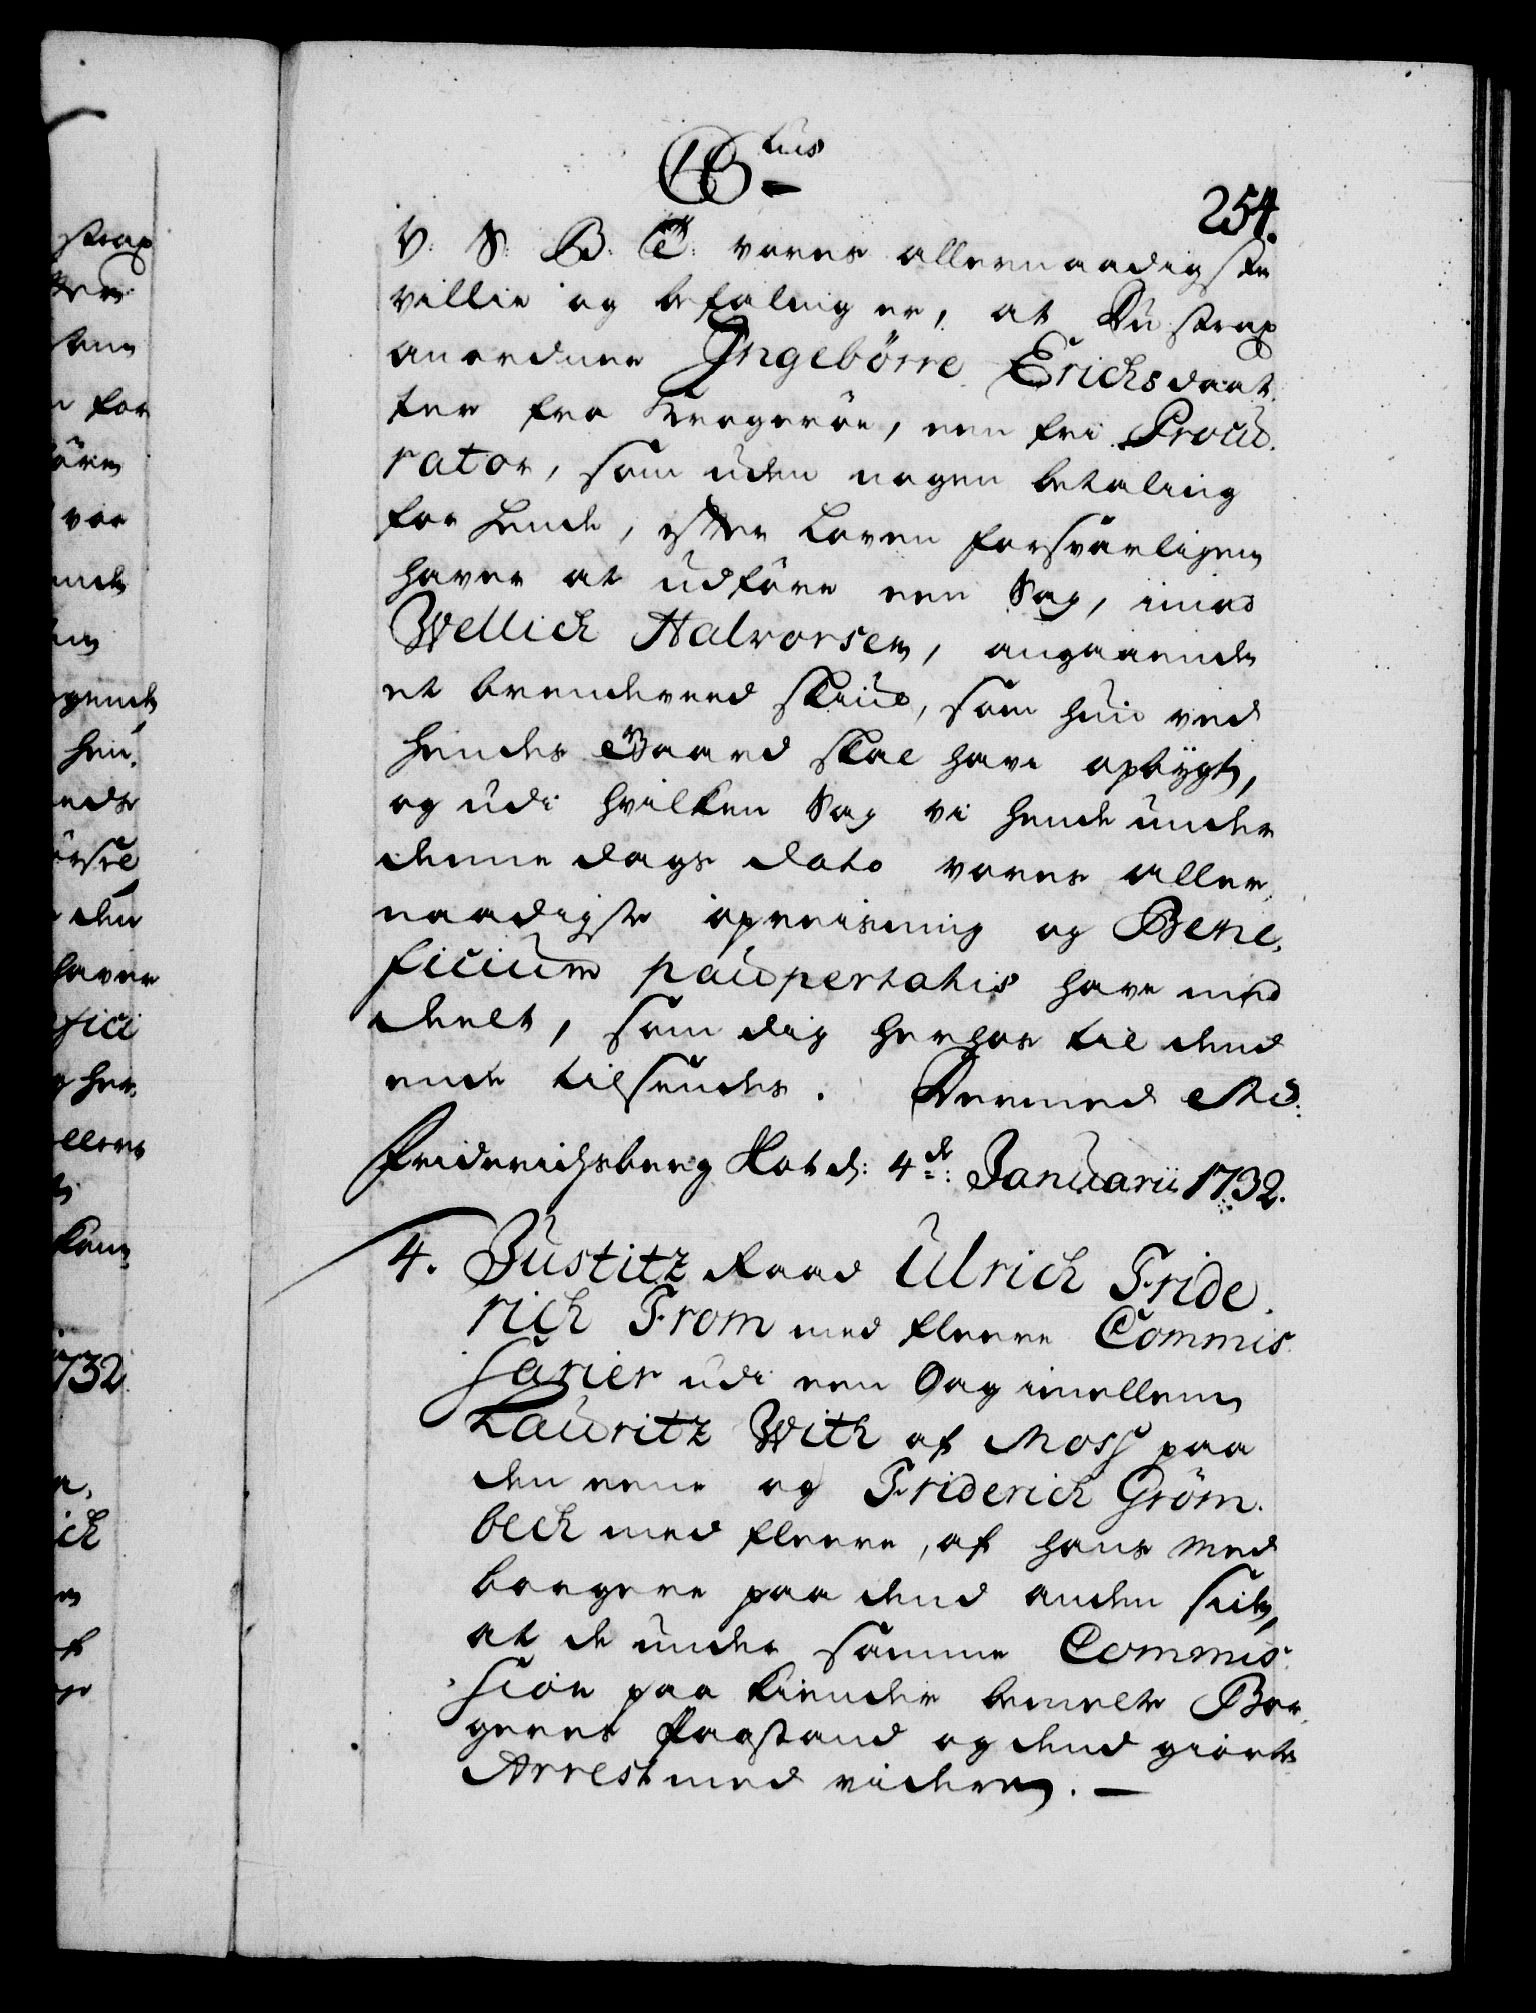 C6<sup>tus</sup>
254.
V: S: B: T: vores allernaadigste
villie og befaling er, at Du strax
anordner Ingebörre Erichsdaat¬
ter fra Kragerøe, een frii Procu¬
rator, som uden nogen betaling
for hende, efter Loven forsvarligen
haver at udføre een Sag, imod
Wellich Halvorsen, angaaende
et brendeveed skiud, som hun ved
hendes Gaard skal have opbygt,
og udi hvilken Sag vi hende under
denne dags dato vores aller¬
naadigste opreisning og Bene¬
ficium paupertatis have med
deelt, som dig herhos til dend
ende tilsendes. Dermed etc:
Friderichsberg Slot d: 4de: Januarii 1732.
4. Justitz Raad Ulrich Fride¬
rich From med fleere Commis¬
sarier udi een Sag imellem
Lauritz With af Moss paa
den eene og Friderich Gröm¬
beck med fleere, af hans med
borgere paa dend anden side,
at de under samme Commis¬
sion paa kiender bemelte Bor¬
geres Paastand og dend giorte
Arrest med videre. —